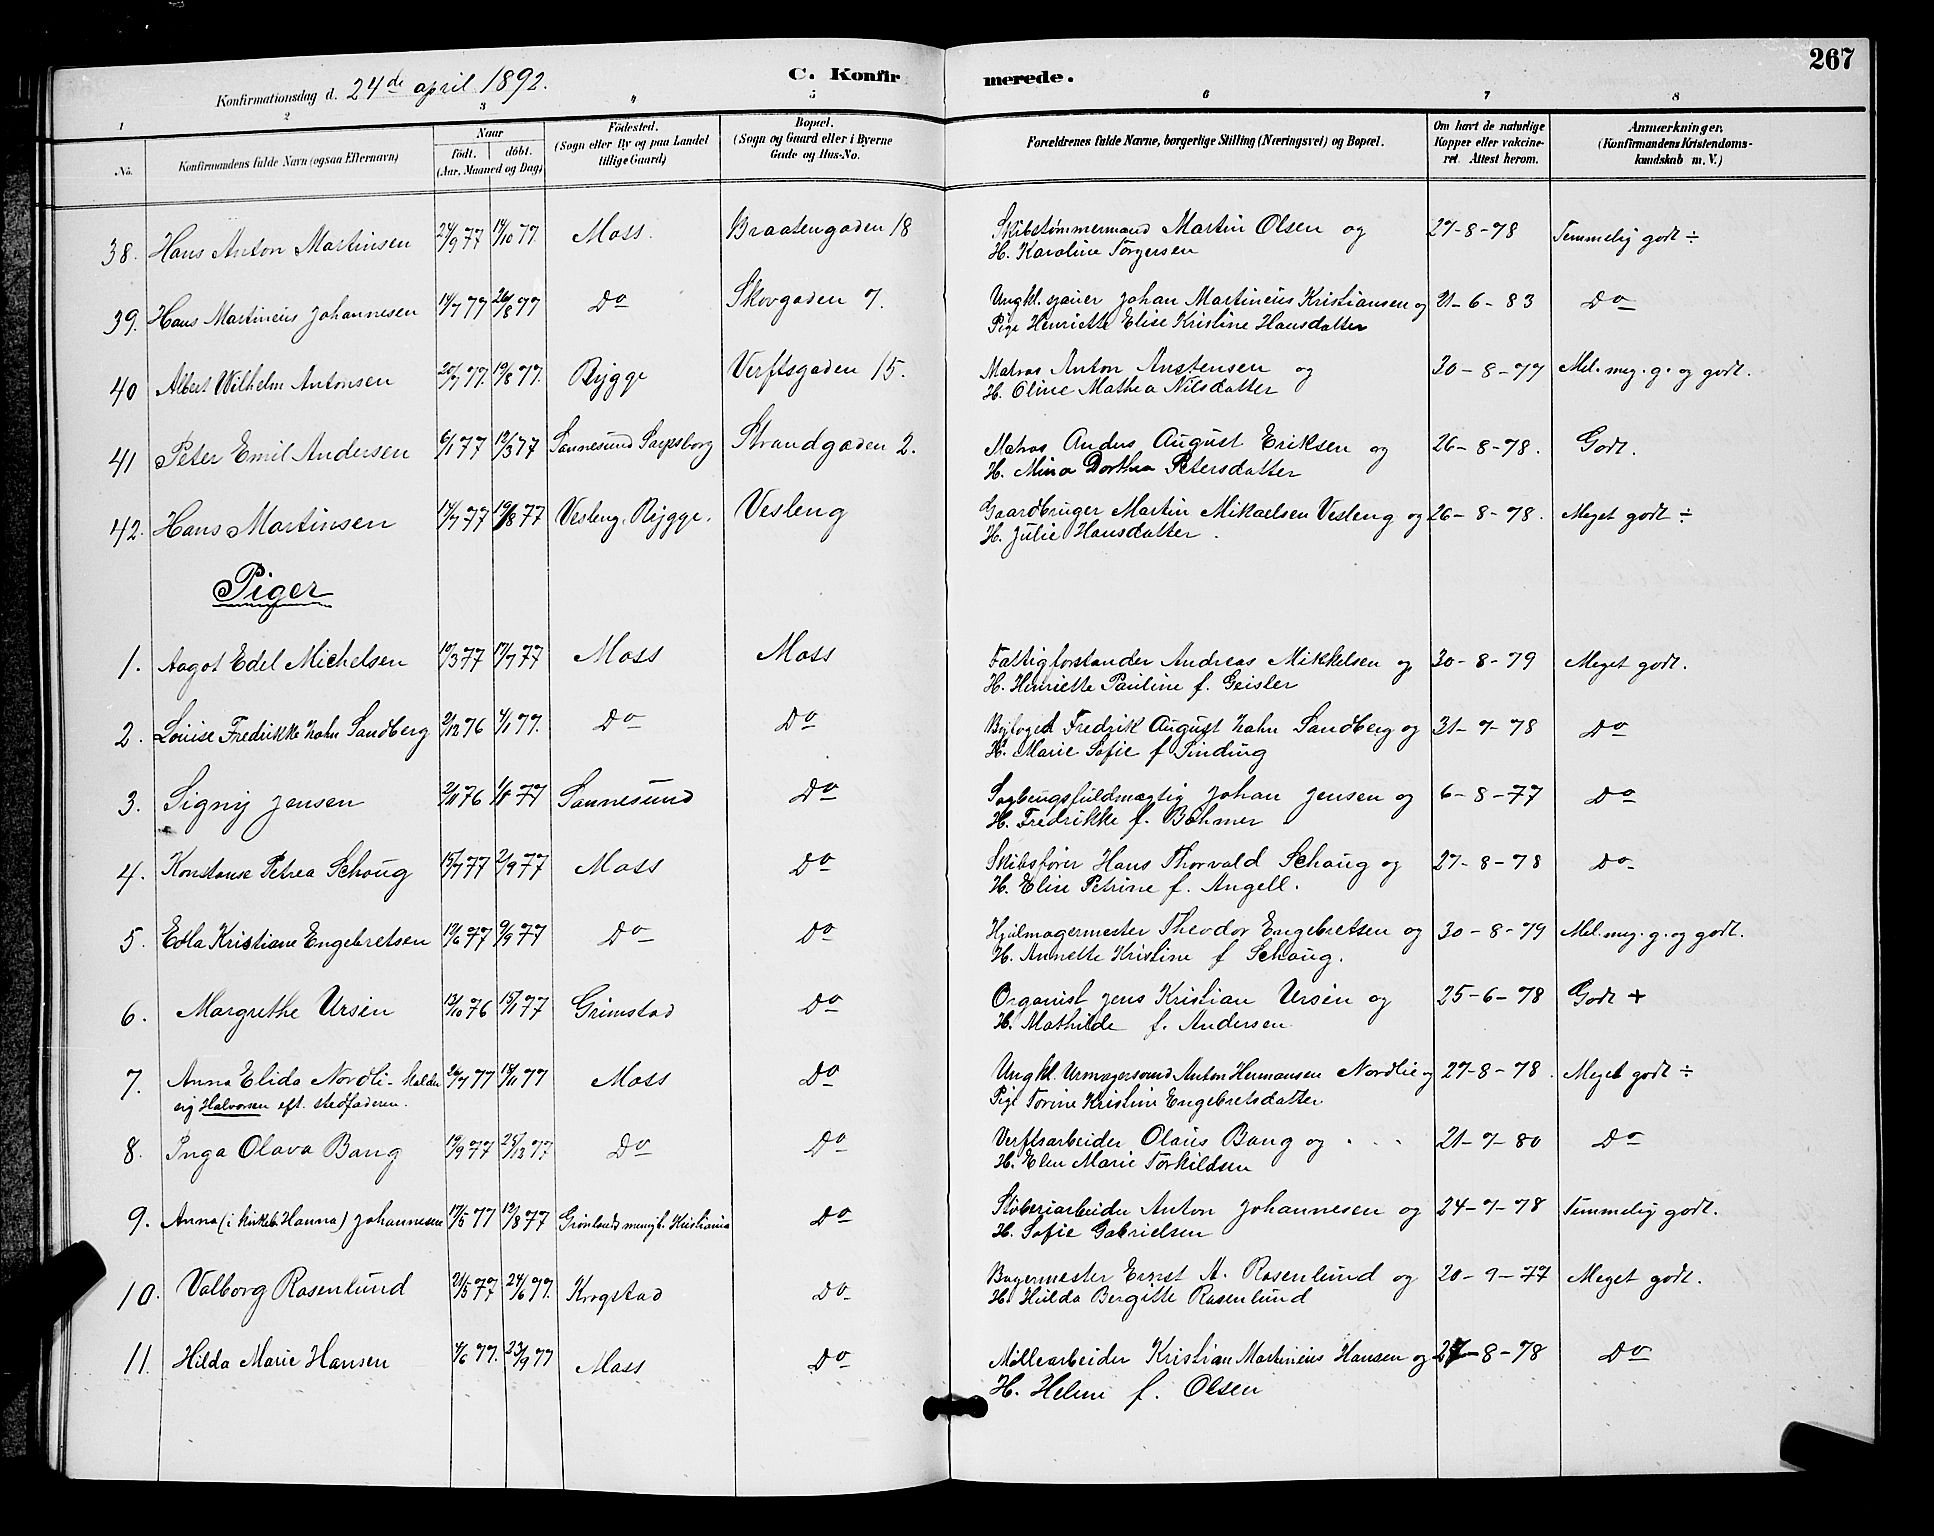 267
Konfirmationsdag d. 24de april 1892.
C. Konfirmerede.
1 2 3 4 5 6 7 8
No. Konfirmandens fulde Navn (ogsaa Efternavn) Naar Födt. döbt. (Aar, Maaned og Dag) Födested. (Sogn eller By og paa Landet tillige Gaard) Bopæl. (Sogn og Gaard eller i Byerne Gade og Hus-No. Forældrenes fulde Navne, borgerlige Stilling (Næringsvei) og Bopæl. Om havt de naturlige Kopper eller vakcineret. Attest herom. Anmærkninger. (Konfirmandens Kristendomskundskab m. V.)
38. Hans Anton Martinsen 24/9 77 14/10 77. Moss. Braatengaden 18 Skibstømmermand Martin Olsen og 27-8-78 Temmelig godt ÷
H. Karoline Torgersen
39. Hans Martinius Johannesen 14/7 77 26/8 77 Do Skovgaden 7. Ungkl. Johan Martinius Kristiansen og 21-6-83 Do
Pige Henriette Elise Kristine Hansdatter
40 Albert Wilhelm Antonsen 20/7 77. 19/8 77. Rygge Verftsgaden 15. Matros Anton Anstensen og 30-8-79 Mel. meg. g. og godt.
H. Oline Mathea Nilsdatter
41 Peter Emil Andersen 6/1 77 19/3 77 Sannesund Sarpsborg Strandgaden 2. Matros Anders August Eriksen og 26-8-78. Godt.
H. Mina Dorthea Petersdatter
42. Hans Martinsen 17/7 77 19/8 77 Vesleng, Rygge. Vesleng Gaardbruger Martin Mikaelsen Vesleng og 26-8-78. Meget godt ÷
H. Julie Hansdatter.
Piger
1. Aagot Edel Michelsen 10/3 77 17/7 77 Moss Moss Fattigforstander Andreas Mikkelsen og 30-8-79 Meget godt.
H. Henriette Pauline f. Geisler
2. Louise Fredrikke Zahn Sandberg 2/12 76 4/1 77. Do Do Byfoged Fredrik August Zahn Sandberg og 31-7-78 Do
H. Marie Sofie f Sinding
3. Signy Jensen 2/11 76 1/1 77 Sannesund Do Sagbrugsfuldmægtig Johan Jensen og 6-8-77 Do
H. Fredrikke f. Böhmer
4. Konstanse Petrea Schoug 15/7 77 2/9 77 Moss Do Skibsfører Hans Thorvald Schoug og 27-8-78 Do
H. Elise Petrine f. Angell.
5. Edla Kristiane Engebretsen 19/6 77 9/9 77 Do Do Hjulmagermester Theodor Engebretsen og 30-8-79 Mel. meg. g. og godt.
H. Annette Kristine f Schoug.
6. Margrethe Ursin 13/10 76 15/1 77 Grimstad Do Organist Jens Kristian Ursin og 25-6-78 Godt +
H. Mathilde f. Andersen
7. Anna Elida Nordli - kalder 26/7 77 18/11 77 Moss Do Ungkl. Urmagersvend Anton Hermansen Nordlie og 27-8-78. Meget godt ÷
sig Halvorsen eft. stedfaderen. Pige Torine Kristine Engebretsdatter
8. Inga Olava Bang 19/9 77 25/12 77 Do Do Verftsarbeider Olaus Bang og 21-7-80 Do
H. Elen Marie Torkildsen
9. Anna (i kirkeb. Hanna) Johannesen 17/5 77 12/8 77 Grønlands mengh. Kristiania Do Støberiarbeider Anton Johannesen og 24-7-78 Temmelig godt.
H. Sofie Gabrielsen
10. Valborg Rosenlund 21/5 77 24/6 77. Krogstad Do Bagermester Ernst A. Rosenlund og 20-9-77 Meget godt.
H. Hulda Bergitte Rosenlund
11. Hilda Marie Hansen 4/6 77. 23/9 77 Moss Do Møllearbeider Kristian Martinius Hansen og 27-8-78 Do
H. Helene f. Olsen